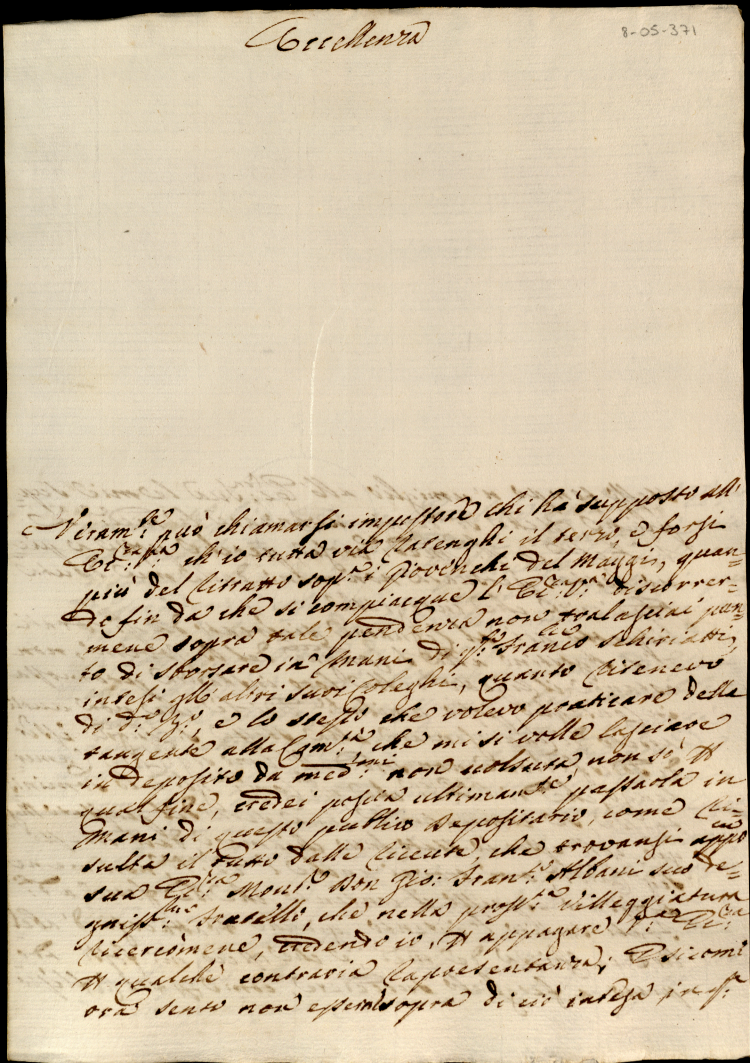 Eccellenza
8-05-371
Veram.te può chiamarsi impostore chi hà supposto all'
Ecc.za V.ra ch'io tutta via ratenghi il terzo, e forsi
più del ritratto sop.a i Giovenchi del Maggi, quan-
do fin da che si compiacque l'Ecc.za V.ra discorrer-
mene sopra tale pendenza non tralasciai pun-
to di sborsare in mani di q.to Fran.co Schiriatti,
intesi gli altri suoi Coleghi, quanto ritenevo
di d.a, e lo stesso che volevo praticare della
tangente alla Com.tà che mi si volle lasciare
in deposito da med.mi non voluta, non sò p
qual fine, credei poscia ultimam.te passarla in
mani di questo publico Depositario, come ri-
sulta il tutto dalle ricevute, che trovansi app.o
sua Ecc.za Mons.r Don Gio: Fran.co Albani suo de-
gniss.mo Fratello, che nella pross.a Villeggiatura
ricercòmene, credendo io, p appagare V.ra Ecc.za
p qualche contraria rapresentanza; E sicom.e
ora sento non essere sopra di ciò intesa, in q.ta